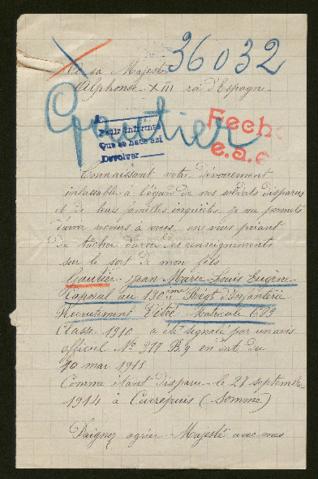 36032
A sa Majesté
Alphonse XIII roi d'Espagne
Gautier
Pedir informes
Que se hace así
Devolver
Fech
e.a.c
Connaissant votre dévouement
inlassable à l'égard de nos soldats disparus
et de leurs familles inquiètes je me permets
d'avoir recours à vous, en vous priant
de tâcher d'avoir des renseignements
sur le sort de mon fils
Gautier Jean Marie Louis Eugène
Caporal au 130ème Régt d'Infanterie
Recrutement Matricule 682
Classe 1910 a été signalé par un avis
officiel No 277 en date du
mai 1915
Comme étant disparu le 27 septembre
1914 à (Somme)
Daignez agréer Majesté avec mes